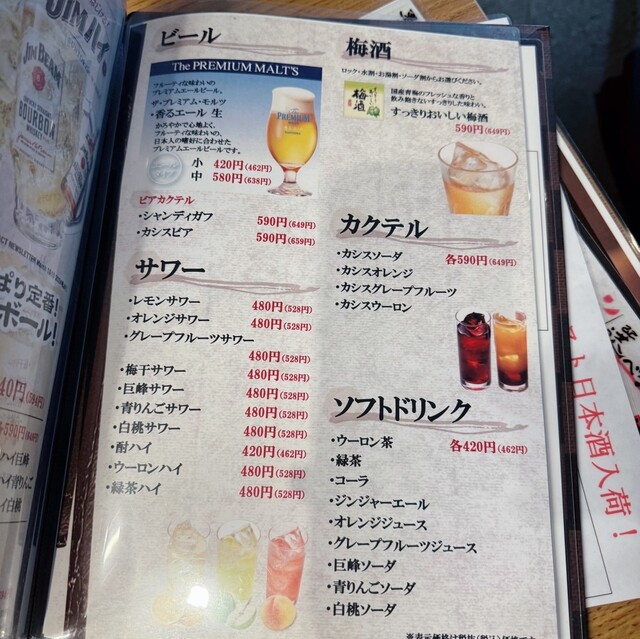 JIM BEAM
BOURBON
ぱり定番!
ボール!
40円(594円)
各590円(649円)
ハイ巨峰
ハイ青りんご
イ白桃
ビール
The PREMIUM MALT'S
フルーティな味わいの
プレミアムエールビール。
ザ・プレミアム・モルツ
・香るエール 生
かろやかで心地よく、
フルーティな味わいの、
日本人の嗜好に合わせた
プレミアムエールビールです。
小 420円(462円)
中 580円(638円)
ビアカクテル
・シャンディガフ 590円(649円)
・カシスビア 590円(659円)
サワー
・レモンサワー 480円(528円)
・オレンジサワー 480円(528円)
・グレープフルーツサワー
480円(528円)
・梅干サワー 480円(528円)
・巨峰サワー 480円(528円)
・青りんごサワー 480円(528円)
・白桃サワー 480円(528円)
・酎ハイ 420円(462円)
・ウーロンハイ 480円(528円)
・緑茶ハイ 480円(528円)
梅酒
ロック・水割・お湯割・ソーダ割からお選びください。
梅酒
国産青梅のフレッシュな香りと
飲み飽きないすっきりした味わい。
すっきりおいしい梅酒
590円(649円)
カクテル
・カシスソーダ 各590円(649円)
・カシスオレンジ
・カシスグレープフルーツ
・カシスウーロン
ソフトドリンク
・ウーロン茶 各420円(462円)
・緑茶
・コーラ
・ジンジャーエール
・オレンジジュース
・グレープフルーツジュース
・巨峰ソーダ
・青りんごソーダ
・白桃ソーダ
※表示価格は税抜(税込)価格です
スト日本酒入荷!